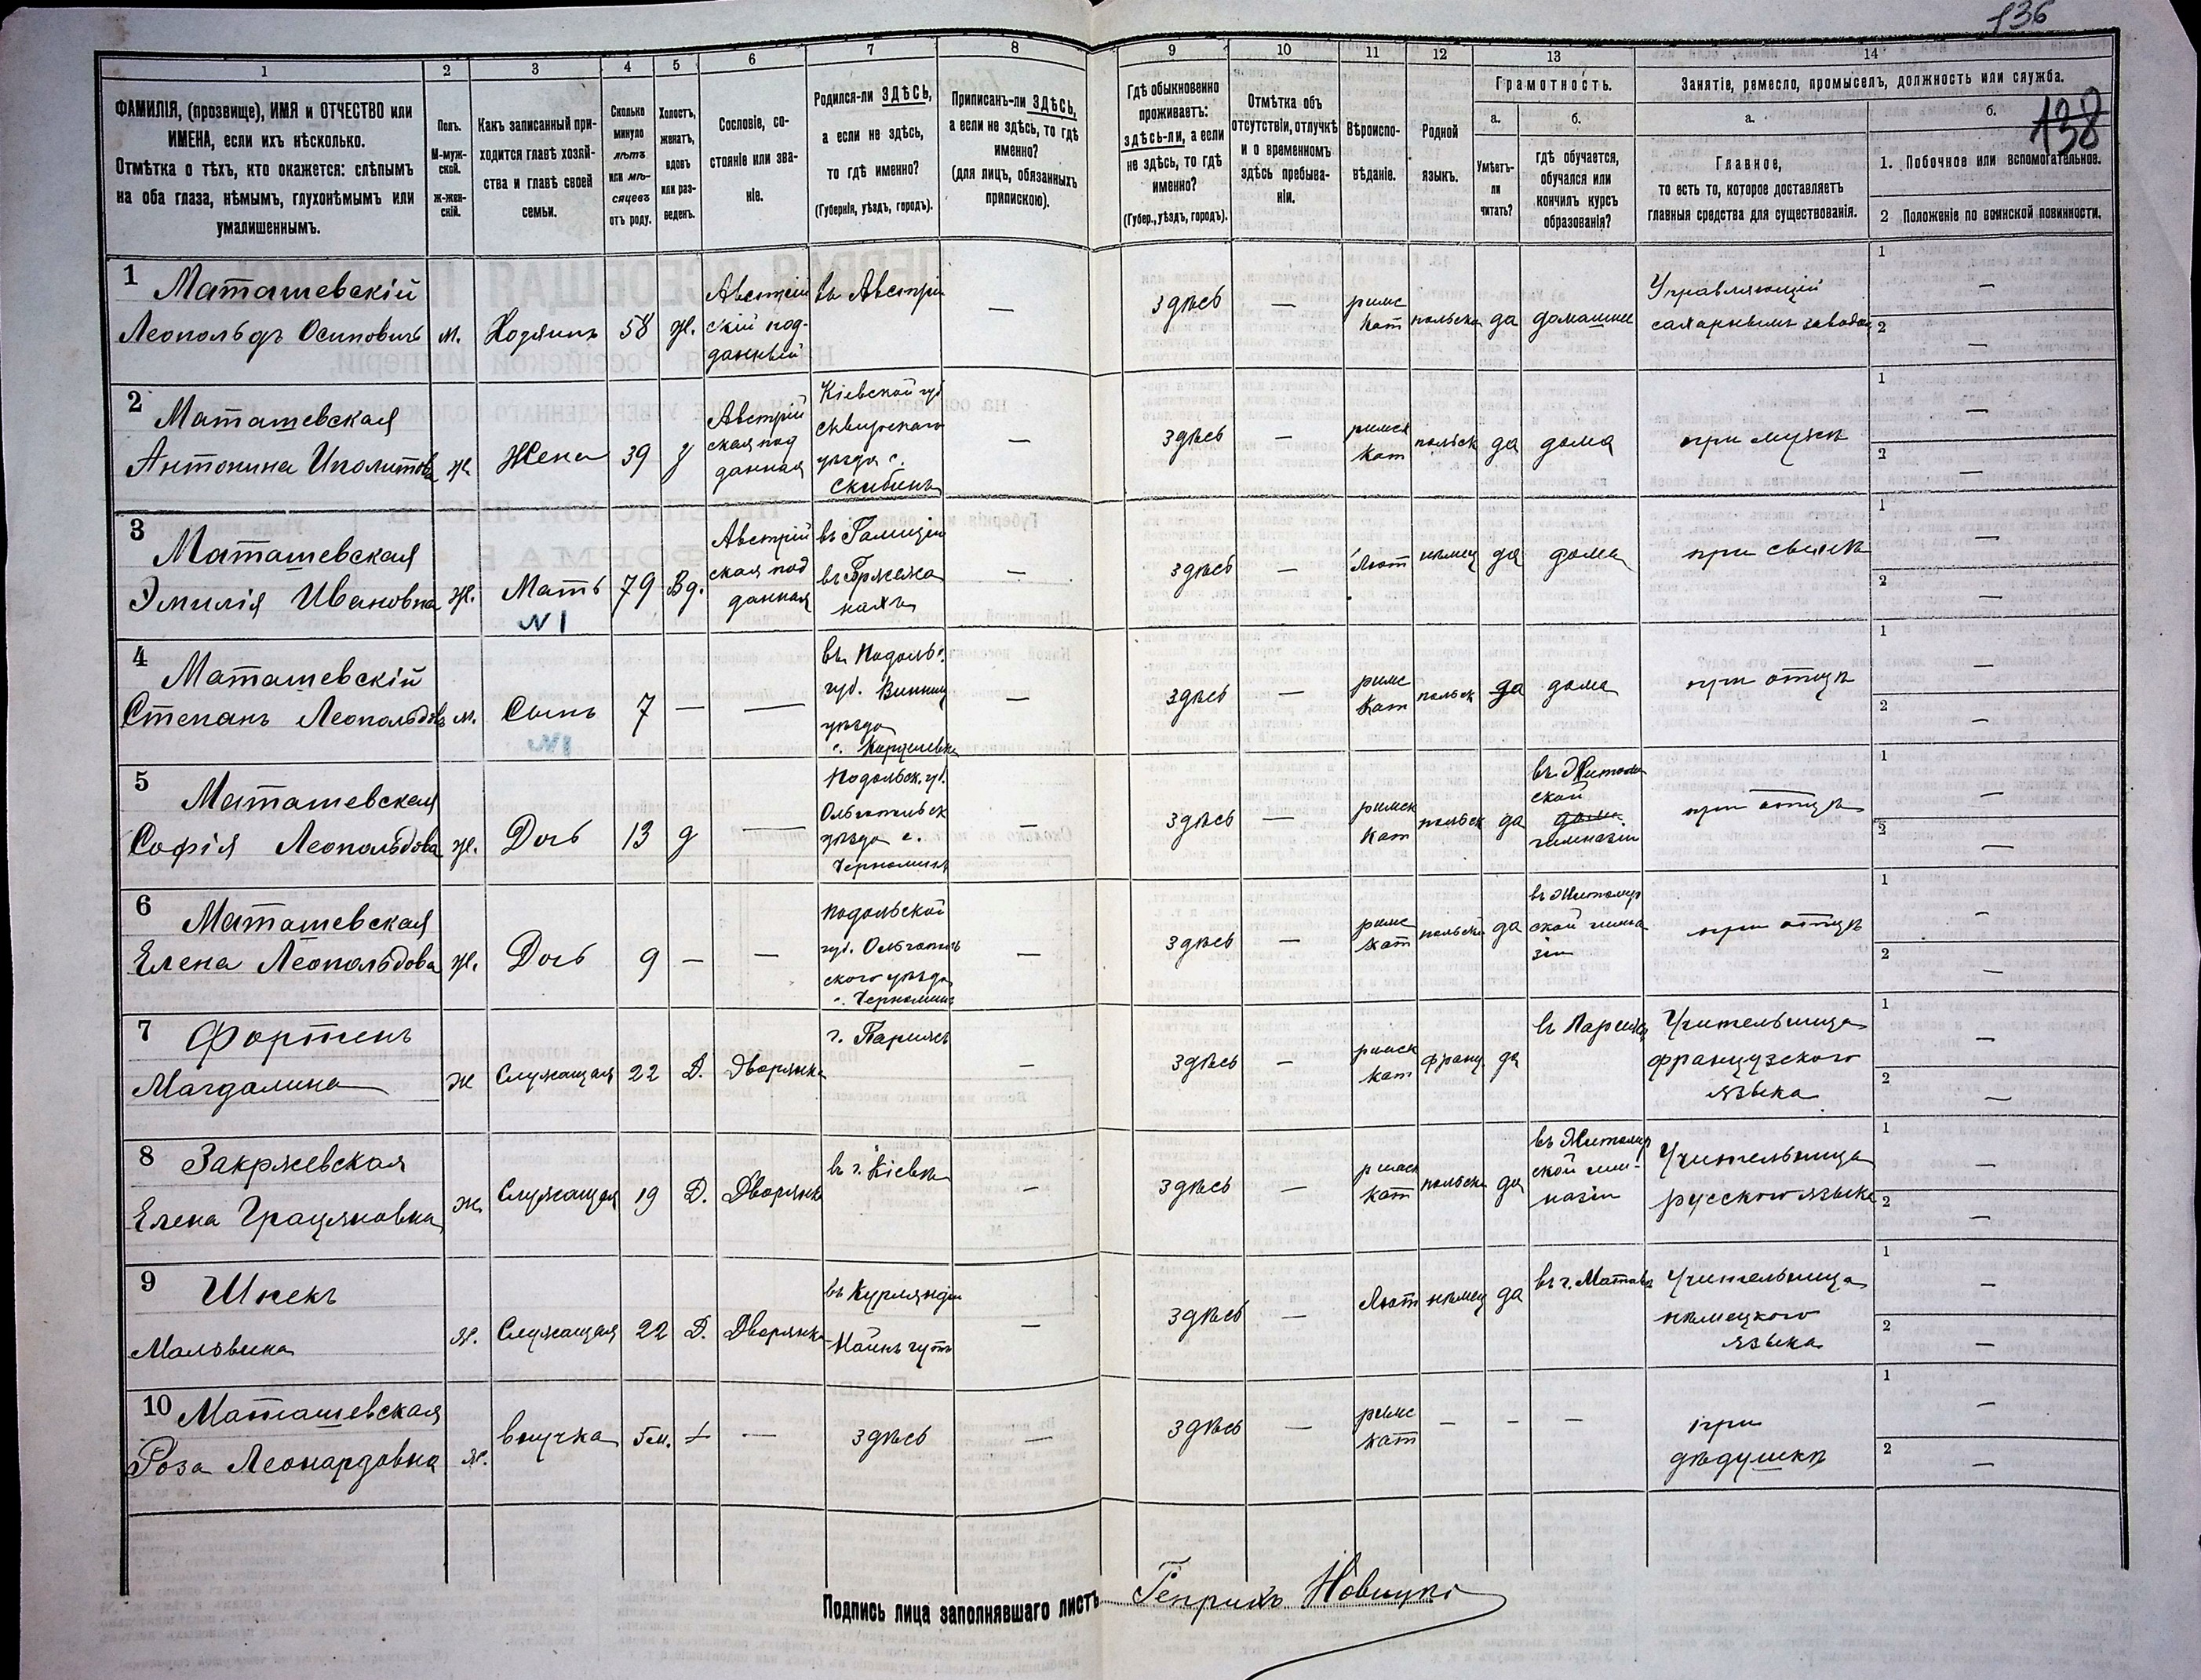 136
138
1
2
3
4
5
6
7
8
9
10
11
12
13
14
ФАМИЛІЯ, (прозвище), ИМЯ и ОТЧЕСТВО или
ИМЕНА, если ихъ нѣсколько.
Отмѣтка о тѣхъ, кто окажется: слѣпымъ
на оба глаза, нѣмымъ, глухонѣмымъ или
умалишеннымъ.
Полъ.
М-муж-
ской.
ж-жен-
скій.
Какъ записанный при-
ходится главѣ хозяй-
ства и главѣ своей
семьи.
Сколько
минуло
лѣтъ
или мѣ-
сяцевъ
отъ роду.
Холостъ,
женатъ,
вдовъ
или раз-
веденъ.
Сословіе, со-
стояніе или зва-
ніе.
Родился-ли ЗДѢСЬ,
а если не здѣсь,
то гдѣ именно?
(Губернія, уѣздъ, городъ).
Приписанъ-ли ЗДѢСЬ,
а если не здѣсь, то гдѣ
именно?
(для лицъ, обязанныхъ
припискою).
Гдѣ обыкновенно
проживаетъ:
здѣсь-ли, а если
не здѣсь, то гдѣ
именно?
(Губер., уѣздъ, городъ).
Отмѣтка объ
отсутствіи, отлучкѣ
и о временномъ
здѣсь пребыва-
ніи.
Вѣроиспо-
вѣданіе.
Родной
языкъ.
Грамотность.
а.
Умѣетъ-
ли
читать?
б.
Гдѣ обучается,
обучался или
кончилъ курсъ
образованія?
Занятіе, ремесло, промыселъ, должность или служба.
а.
Главное,
то есть то, которое доставляетъ
главныя средства для существованія.
б.
1. Побочное или вспомогательное.
2 Положеніе по воинской повинности.
1
Маташевскій
Леопольдъ Осиповичъ
м.
Хозяинъ
58
ж.
Австрій
скій под-
данный
въ Австріи
—
здѣсь
—
римс
кат
польски
да
домашнее
Управляющій
сахарнымъ заводом
1
—
2
—
2
Маташевская
Антонина Иполитов
ж
Жена
39
з
Австрій
ская под
данная
Кіевской губ
Сквирскаго
уѣзда с.
Скибенъ
—
здѣсь
—
римск
кат
польск
да
дома
при мужѣ
1
—
2
—
3
Маташевская
Эмилія Ивановна
ж.
Мать
N1
79
Вд.
Австрій
ская под
данная
въ Галиціи
въ Бржежа
нахъ
—
здѣсь
—
Лют
нѣмец
да
дома
при сынѣ
1
—
2
—
4
Маташевскій
Степанъ Леопольдовъ
м.
Сынъ
7
—
—
въ Подольс.
губ. Винниц
уѣзда
—
здѣсь
—
римс
кат
польск
да
дома
при отцѣ
1
—
2
—
5
Маташевская
Софія Леопольдова
ж.
Дочь
13
д
—
Подольск. губ.
Ольгопольск
уѣзда с.
Черноминъ
—
здѣсь
—
римск
кат
польск
да
въ Житомир
ской
дома
гимназіи
при отцѣ
1
—
2
—
6
Маташевская
Елена Леопольдова
ж.
Дочь
9
—
—
Подольской
губ. Ольгополь
ского уѣзда
с. Черноминъ
—
здѣсь
—
римс
кат
польски
да
въ Житомир
ской гимна
зіи
при отцѣ
1
—
2
—
7
Фортенъ
Магдалина
ж
Служащая
22
Д.
Дворянка
г. Парижъ
—
здѣсь
—
римск
кат
франц
да
въ Парижѣ
Учительница
французского
языка
1
—
2
—
8
Закржевская
Елена Граціяновна
ж.
Служащая
19
Д.
Дворянка
въ г. Кіевѣ
—
здѣсь
—
римск
кат
польски
да
въ Житомир
ской гим-
назіи
Учительница
русского языка
1
—
2
—
9
Шнекъ
Мальвина
ж.
Служащая
22
Д.
Дворянка
въ Курляндіи
—
здѣсь
—
Лют
нѣмец
да
въ г. Митавѣ
Учительница
нѣмецкого
языка
1
—
2
—
10
Маташевская
Роза Леонардовна
ж.
внучка
5м.
—
здѣсь
—
здѣсь
—
римс
кат
—
—
—
при
дѣдушкѣ
1
—
2
—
Подпись лица заполнявшаго листъ Генрихъ Новицкі